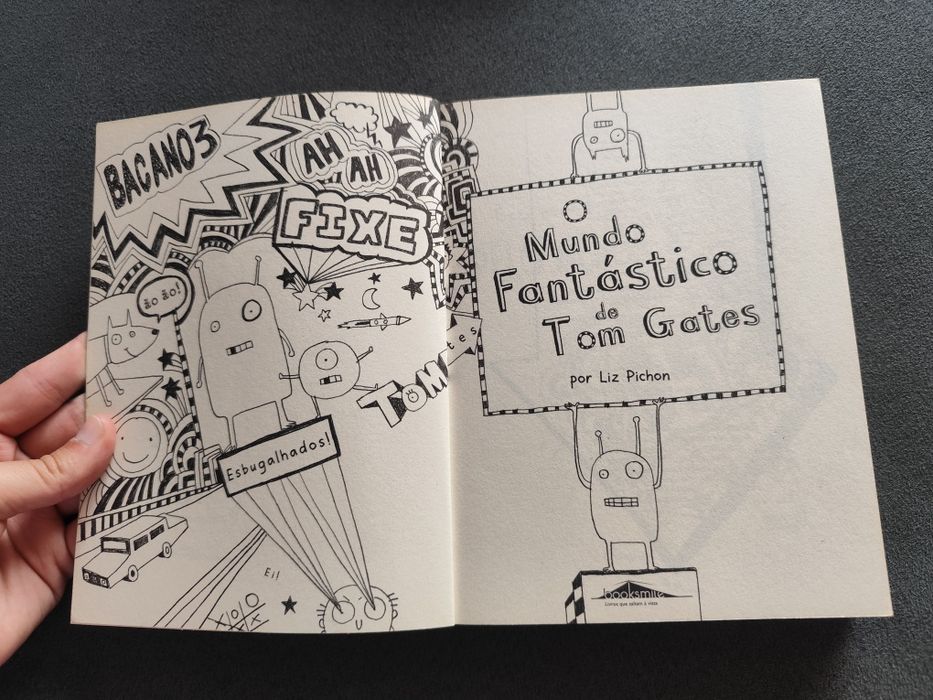 BACANO3
AH
AH
FIXE
ão ão!
TOM
tes
Esbugalhados!
Ei!
X O O
X X
O
Mundo
Fantástico
de
Tom Gates
por Liz Pichon
booksmile
Livros que saltam à vista